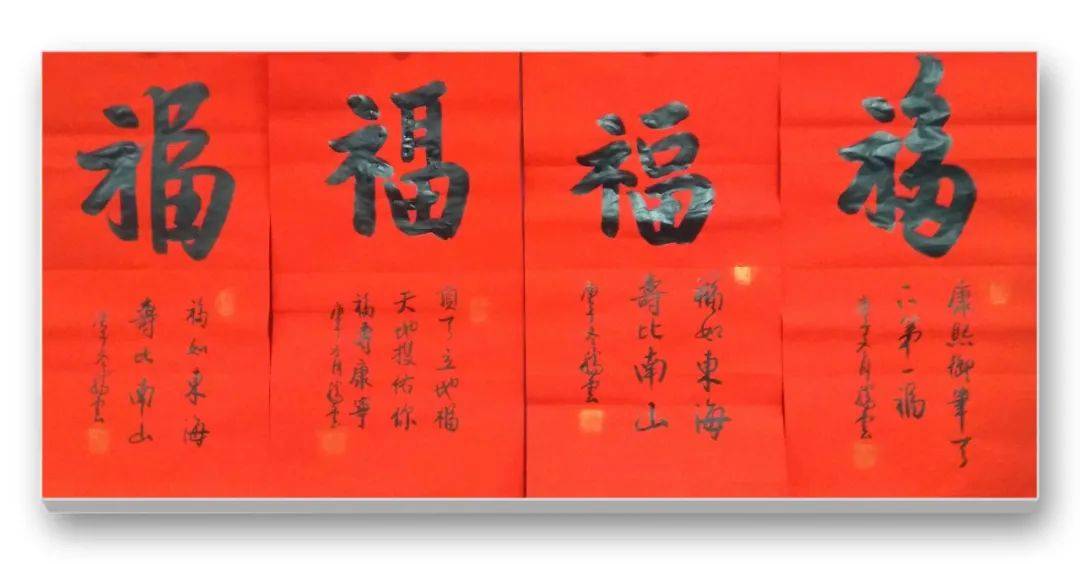 福
福如東海
壽比南山
福
立地福
天地佑你
福壽康寧
福
福如東海
壽比南山
庚子冬
福
康熙御筆天
下第一福